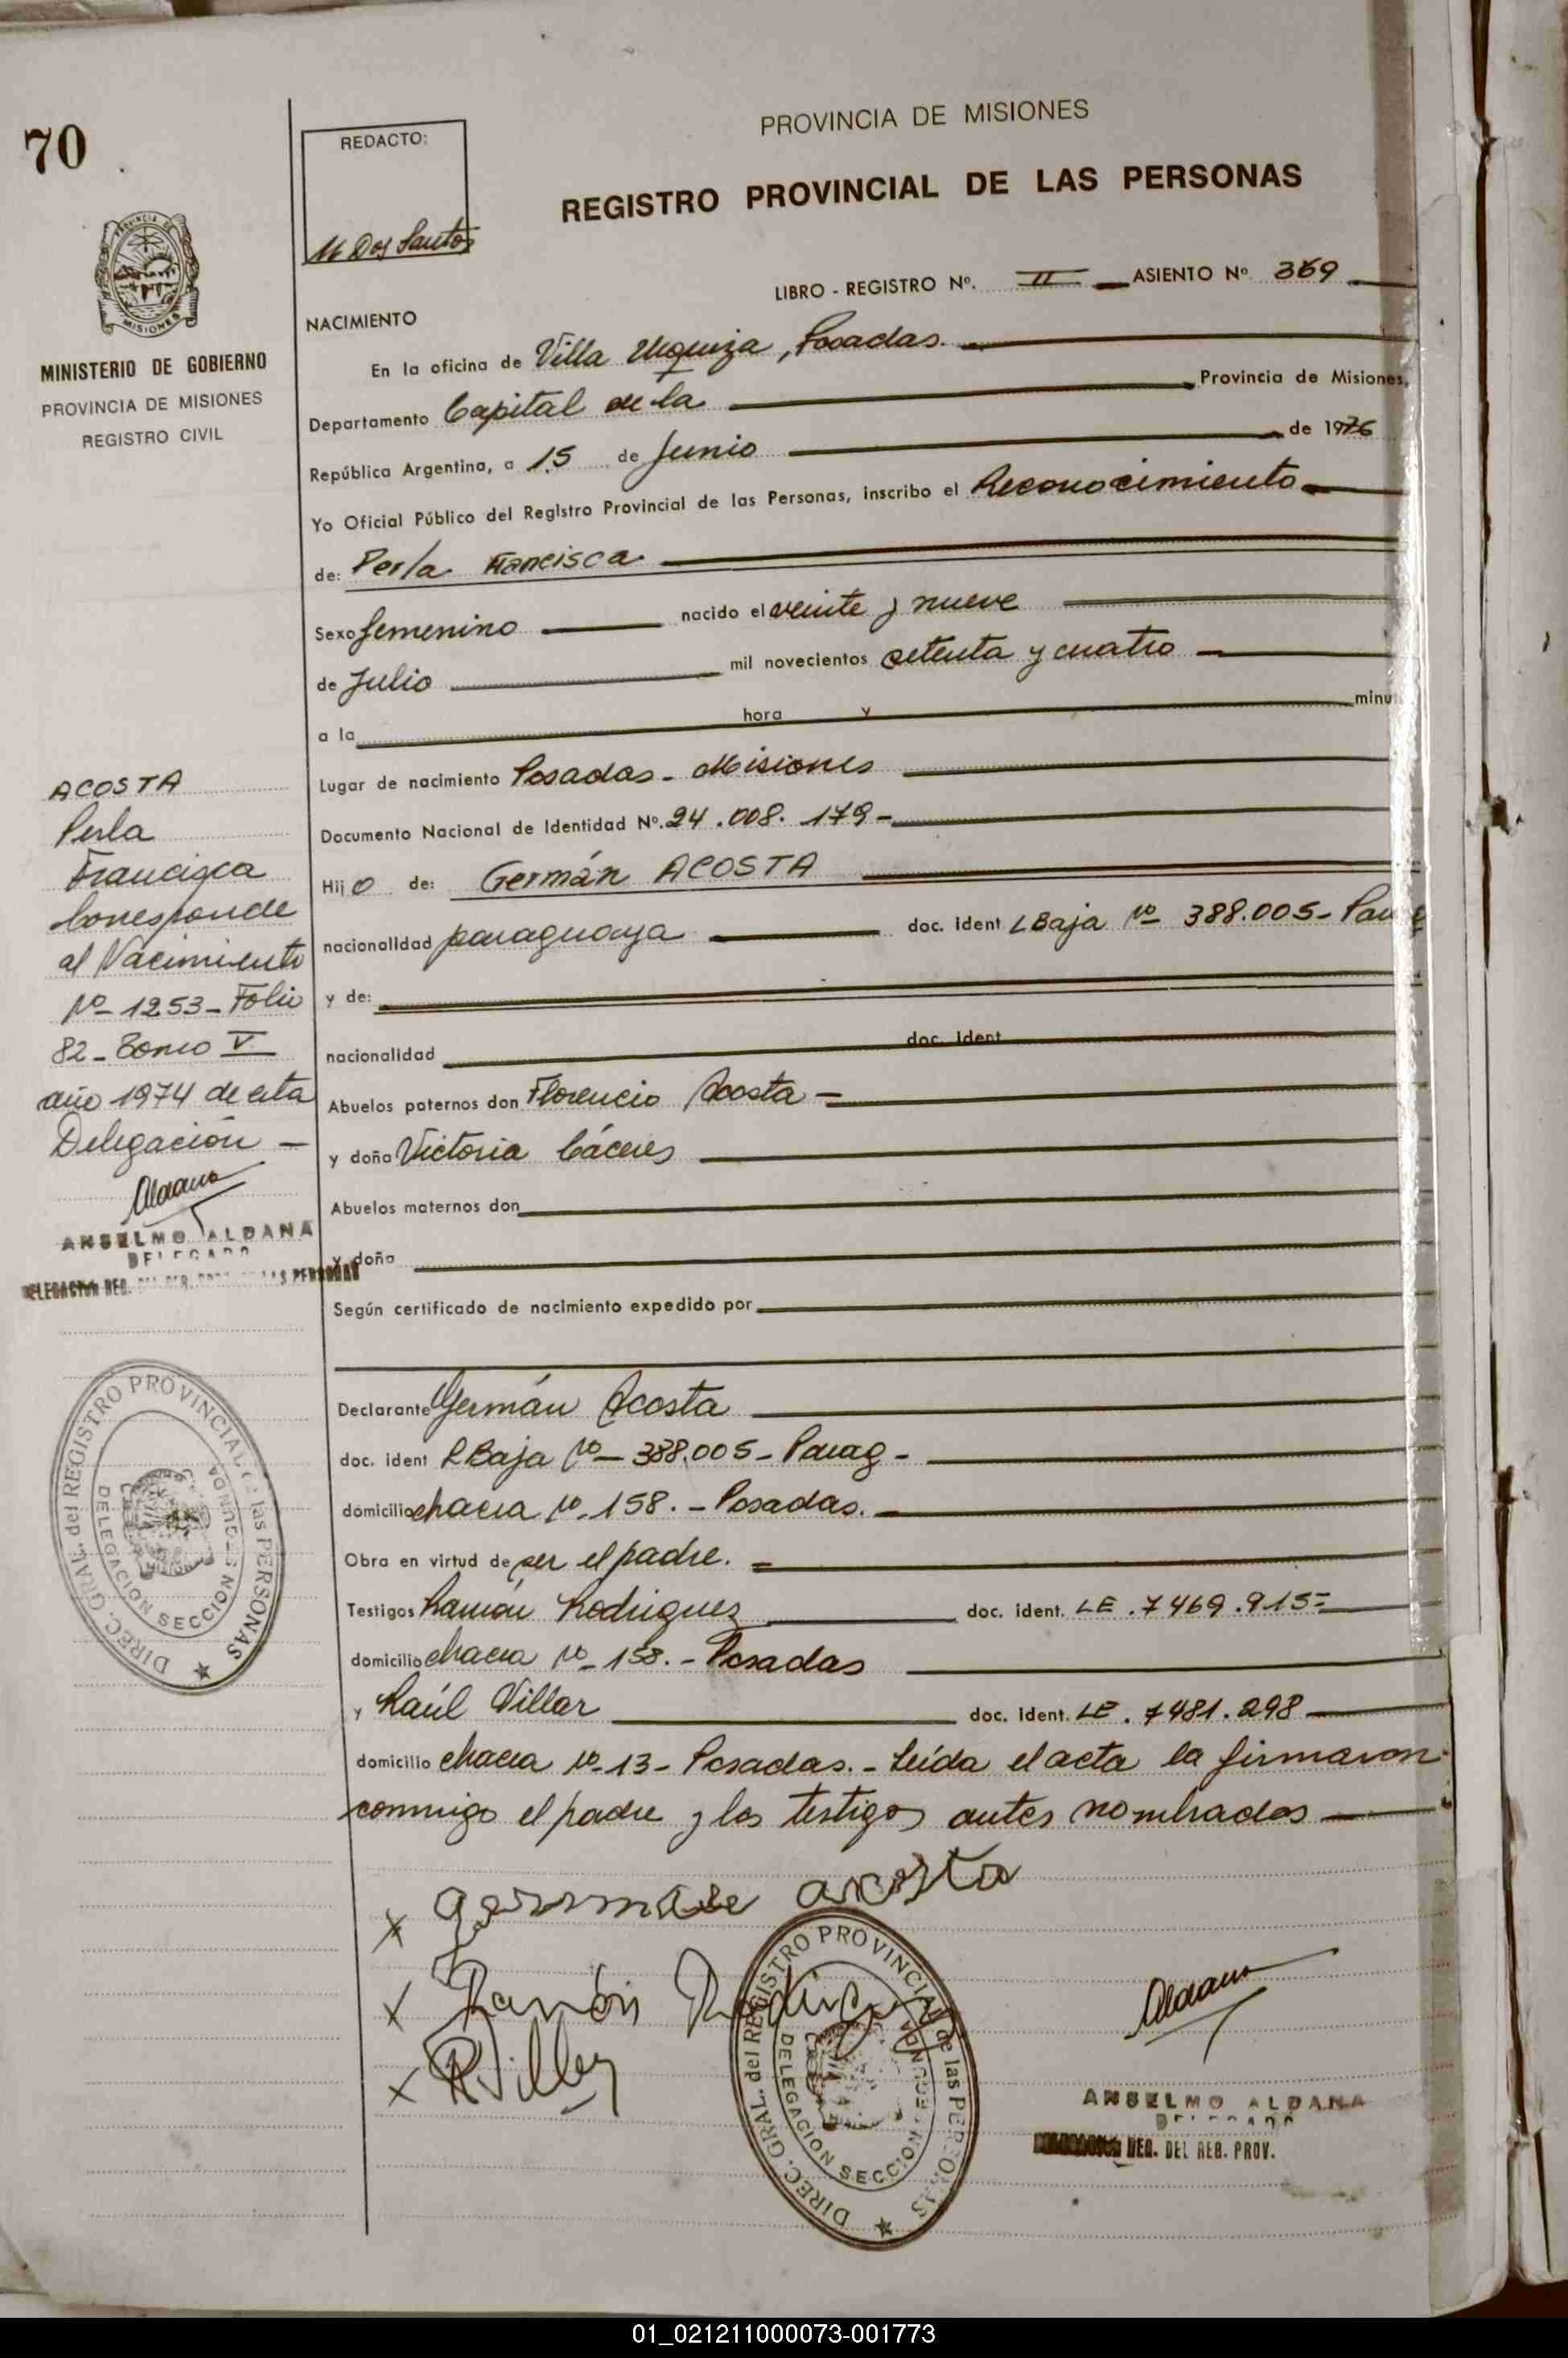 70
PROVINCIA DE MISIONES
REGISTRO PROVINCIAL DE LAS PERSONAS
REDACTO:
M Dos Santos
MISIONES
MINISTERIO DE GOBIERNO
PROVINCIA DE MISIONES
REGISTRO CIVIL
LIBRO - REGISTRO Nº. II ASIENTO Nº 369
NACIMIENTO
En la oficina de Villa Urquiza, Posadas.
Departamento Capital de la Provincia de Misiones,
República Argentina, a 15 de Junio de 1976
Yo Oficial Público del Registro Provincial de las Personas, inscribo el Reconocimiento
de: Perla Francisca
Sexo femenino nacido el veinte y nueve
de Julio mil novecientos setenta y cuatro
a la hora y minu
Lugar de nacimiento Posadas - Misiones
Documento Nacional de Identidad Nº. 24.008.179-
Hijo de: Germán ACOSTA
nacionalidad paraguaya doc. ident LBaja Nº 388.005-
y de:
nacionalidad doc. ident
Abuelos paternos don Florencio Acosta -
y doña Victoria Cáceres
Abuelos maternos don
y doña
Según certificado de nacimiento expedido por
Declarante Germán Acosta
doc. ident LBaja Nº - 388.005 - Parag -
domicilio chacra Nº 158. - Posadas.
Obra en virtud de ser el padre.
Testigos Ramón Rodriguez doc. ident. LE. 7469.915-
domicilio chacra Nº - 158. - Posadas
y Raúl Villar doc. ident. LE. 7481.298
domicilio chacra Nº-13- Posadas. - Leída el acta la firmaron
conmigo el padre y los testigos antes nombrados
ACOSTA
Perla
Francisca
Corresponde
al Nacimiento
Nº 1253 - Folio
82 - Tomo V
año 1974 de esta
Delegación -
Aldana
ANSELMO ALDANA
DELEGADO
DIREC. GRAL. del REGISTRO PROVINCIAL de las PERSONAS
DELEGACION SECCION SEGUNDA
x acosta
x Ramón Rodriguez
x RVillar
DIREC. GRAL. del REGISTRO PROVINCIAL de las PERSONAS
DELEGACION SECCION SEGUNDA
Aldana
ANSELMO ALDANA
DELEGADO
REG. DEL REG. PROV.
01_021211000073-001773